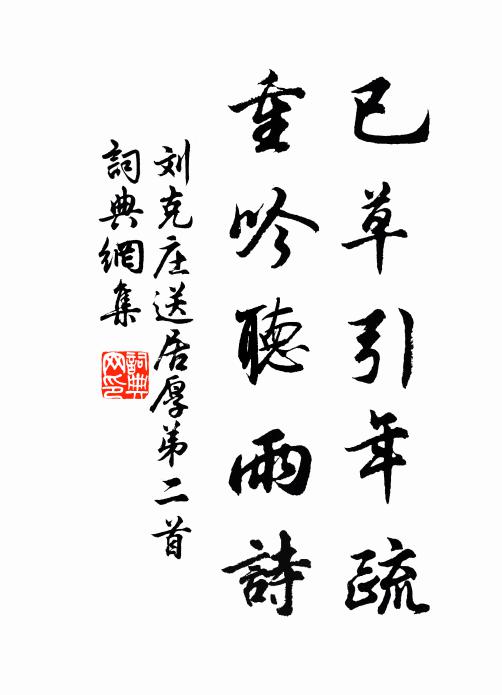 已草引年疏
重吟聽雨詩
刘克庄送居厚弟二首
詞典網集
詞典网印